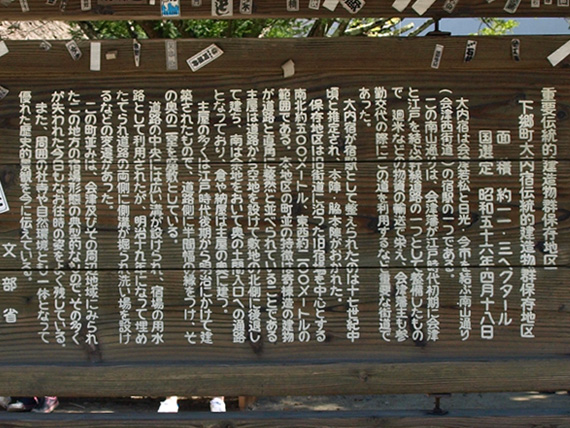 重要伝統的建造物群保存地区
下郷町大内宿伝統的建造物群保存地区
面積 約一一・三ヘクタール
国選定 昭和五十六年四月十八日
大内宿は会津若松と日光 今市を結ぶ南山通り
(会津西街道)の宿駅の一つである。
この南山通りは、会津藩が江戸時代初期に会津
と江戸を結ぶ幹線道路の一つとして整備したもの
で、廻米などの物資の輸送で栄え、会津藩主も参
勤交代の際にこの道を利用するなど重要な街道で
あった。
大内宿が宿駅として整えられたのは十七世紀中
頃と推定され、本陣・脇本陣がおかれた。
保存地区は旧街道に沿った旧宿場を中心とする
南北約五〇〇メートル、東西約二〇〇メートルの
範囲である。本地区の町並の特徴は寄棟造の建物
が道路と直角に整然と並べられていることである
主屋は道路から空地を設けて敷地の北側に後退し
て建ち、南は空地をおいて奥の土間入口への通路
となっており、倉や納屋は主屋の裏に建つ。
主屋の多くは江戸時代後期から明治にかけて建
築されたもので、道路側に半間幅の縁をつけ、そ
の奥の二室を座敷としている。
道路の中央には広い溝が設けられ、宿場の用水
路として利用されたが、明治十九年に至って埋め
たてられ道路の両側に側溝が掘られ洗い場を設け
るなどの変遷があった。
この町並みは、会津及びその周辺地域にみられ
たこの地方の宿場形態の典型的なもので、その多く
が失われた今日もなお往時の姿をよく残している。
また、周囲の社寺や自然環境とも一体となって
優れた歴史的景観を今に伝えている。
文部省